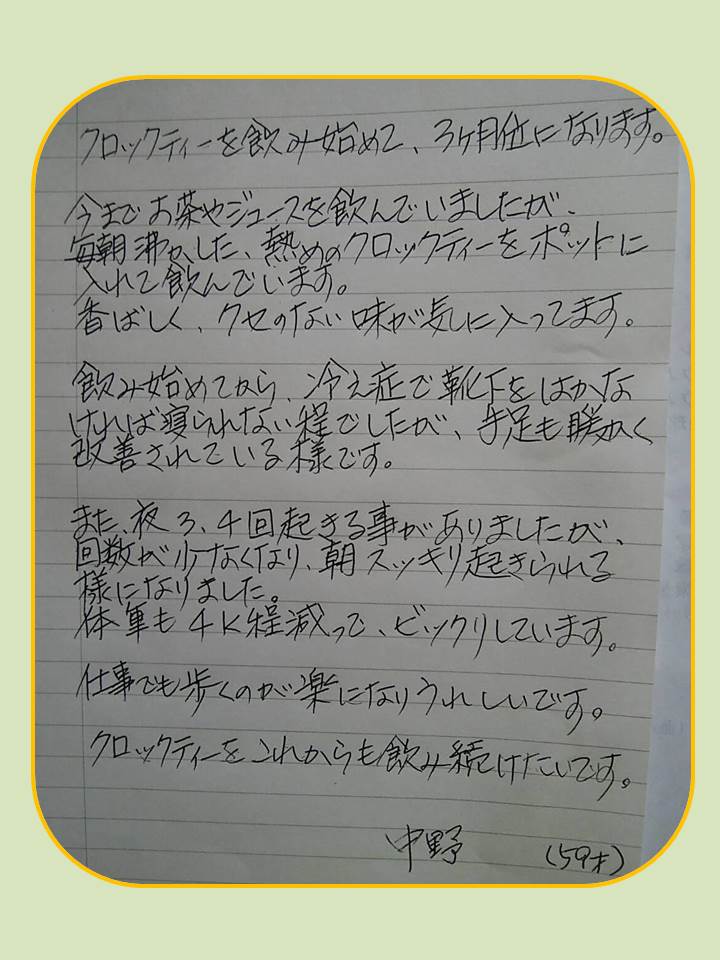 クロックティーを飲み始めて、3ヶ月位になります。
今までお茶やジュースを飲んでいましたが、
毎朝沸かした、熱めのクロックティーをポットに
入れて飲んでいます。
香ばしく、クセのない味が気に入ってます。
飲み始めてから、冷え症で靴下をはかな
ければ寝られない程でしたが、手足も暖かく
改善されている様です。
また、夜3、4回起きる事がありましたが、
回数が少なくなり、朝スッキリ起きられる
様になりました。
体重も4K程減って、ビックリしています。
仕事でも歩くのが楽になりうれしいです。
クロックティーをこれからも飲み続けたいです。
中野 (59才)